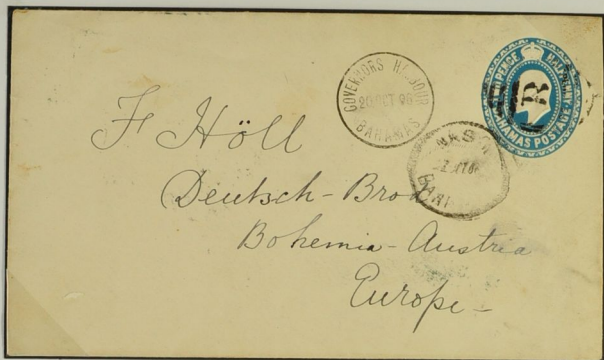 GOVERNORS HARBOUR
20 OCT
BAHAMAS
PENCE HALFPENNY
BAHAMAS POSTAGE
R
F Höll
Deutsch-Brod
Bohemia-Austria
Europe-